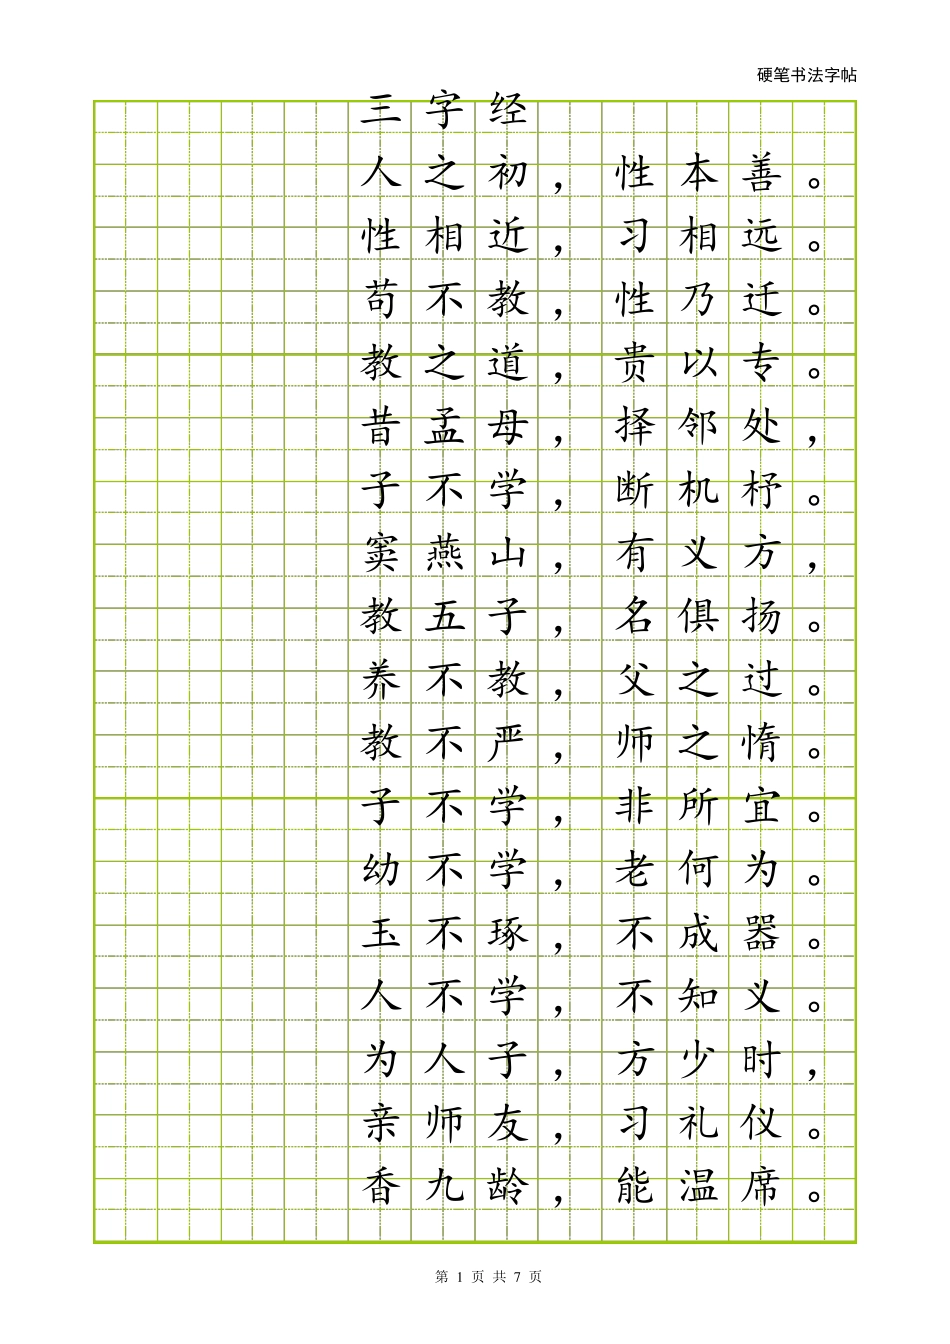 硬笔书法字帖
三字经
人之初，性本善。
性相近，习相远。
苟不教，性乃迁。
教之道，贵以专。
昔孟母，择邻处，
子不学，断机杼。
窦燕山，有义方，
教五子，名俱扬。
养不教，父之过。
教不严，师之惰。
子不学，非所宜。
幼不学，老何为。
玉不琢，不成器。
人不学，不知义。
为人子，方少时，
亲师友，习礼仪。
香九龄，能温席。
第 1 页 共 7 页